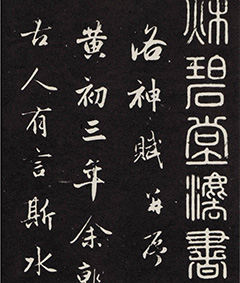 秌碧堂灋書
洛神賦并序
黃初三年余朝
古人有言斯水